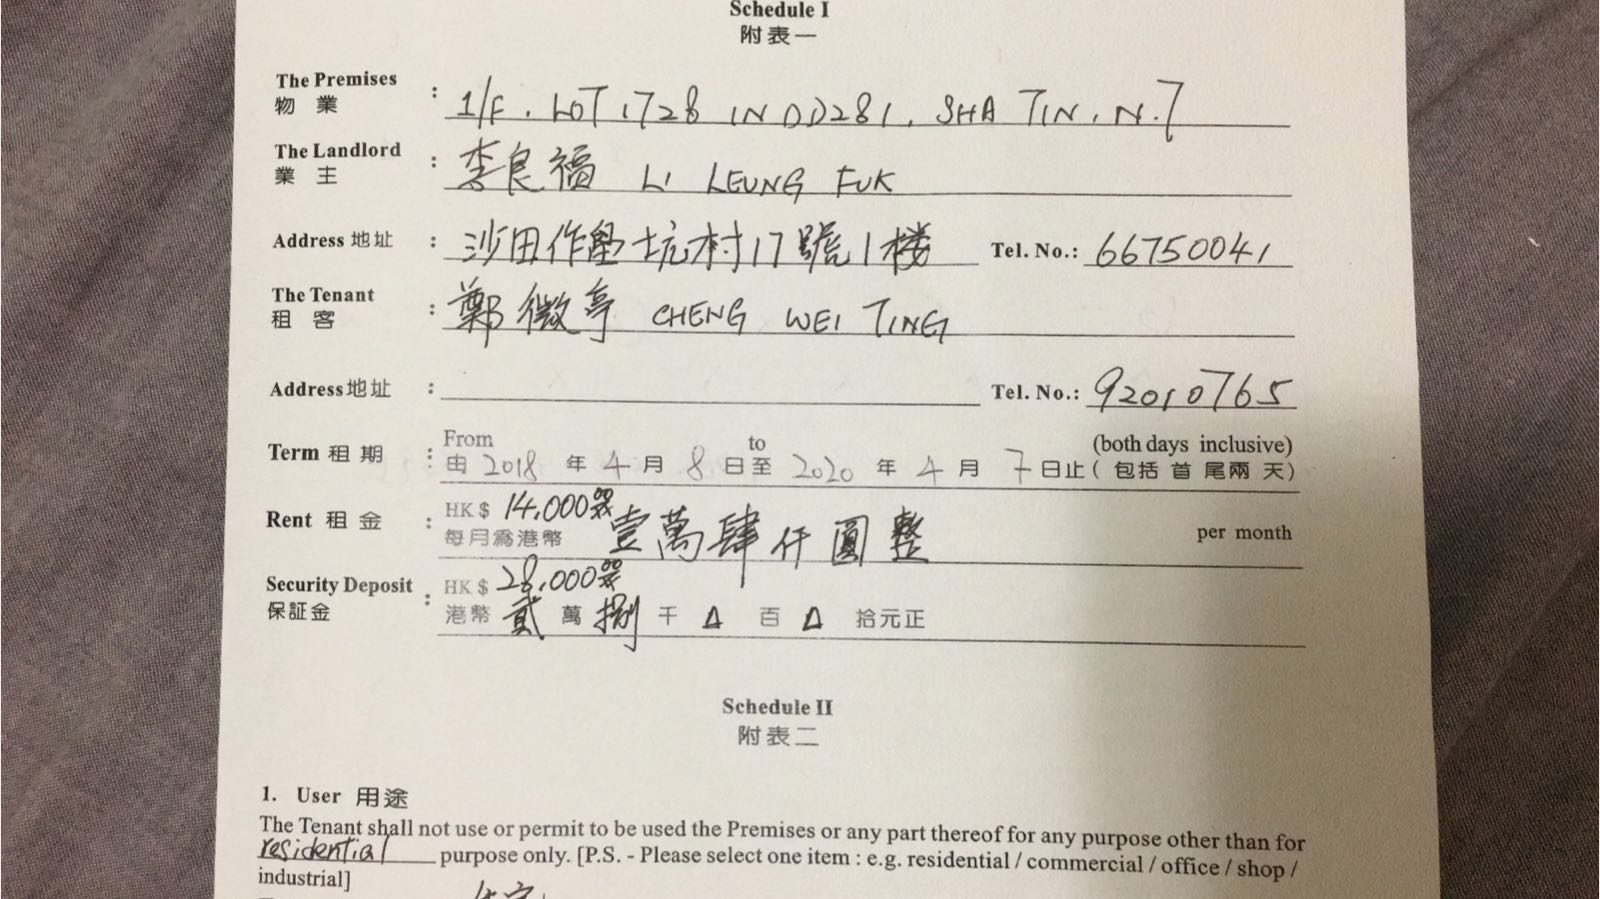 Schedule I
附表一
The Premises
物業 : 1/F, LOT 1728 IN DD281, SHA TIN, N.T
The Landlord
業主 : 李良福 LI LEUNG FUK
Address 地址 : 沙田作壆坑村17號1楼 Tel. No.: 66750041
The Tenant
租客 : 鄭微亭 CHENG WEI TING
Address地址 : Tel. No.: 92010765
From to (both days inclusive)
Term 租期 : 由 2018 年 4 月 8 日至 2020 年 4 月 7 日止 (包括首尾兩天)
Rent 租金 : HK$ 14,000
每月為港幣 壹萬肆仟圓整 per month
Security Deposit : HK$ 28,000
保証金 港幣 貳 萬 捌 千 △ 百 △ 拾元正
Schedule II
附表二
1. User 用途
The Tenant shall not use or permit to be used the Premises or any part thereof for any purpose other than for
residential purpose only. [P.S. - Please select one item : e.g. residential / commercial / office / shop /
industrial]